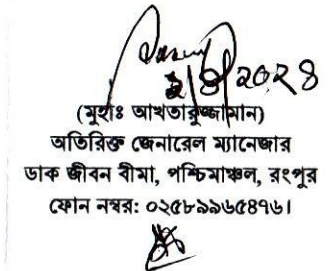 ২/৪/২০২৪
(মুহাঃ আখতারুজ্জামান)
অতিরিক্ত জেনারেল ম্যানেজার
ডাক জীবন বীমা, পশ্চিমাঞ্চল, রংপুর
ফোন নম্বর: ০২৫৮৯৯৬৫৪৭৬।